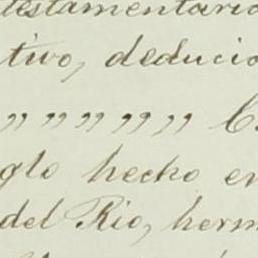 testamentario
tivo, deducio
" " " " " " " " " "
glo hecho en
del Rio, herm